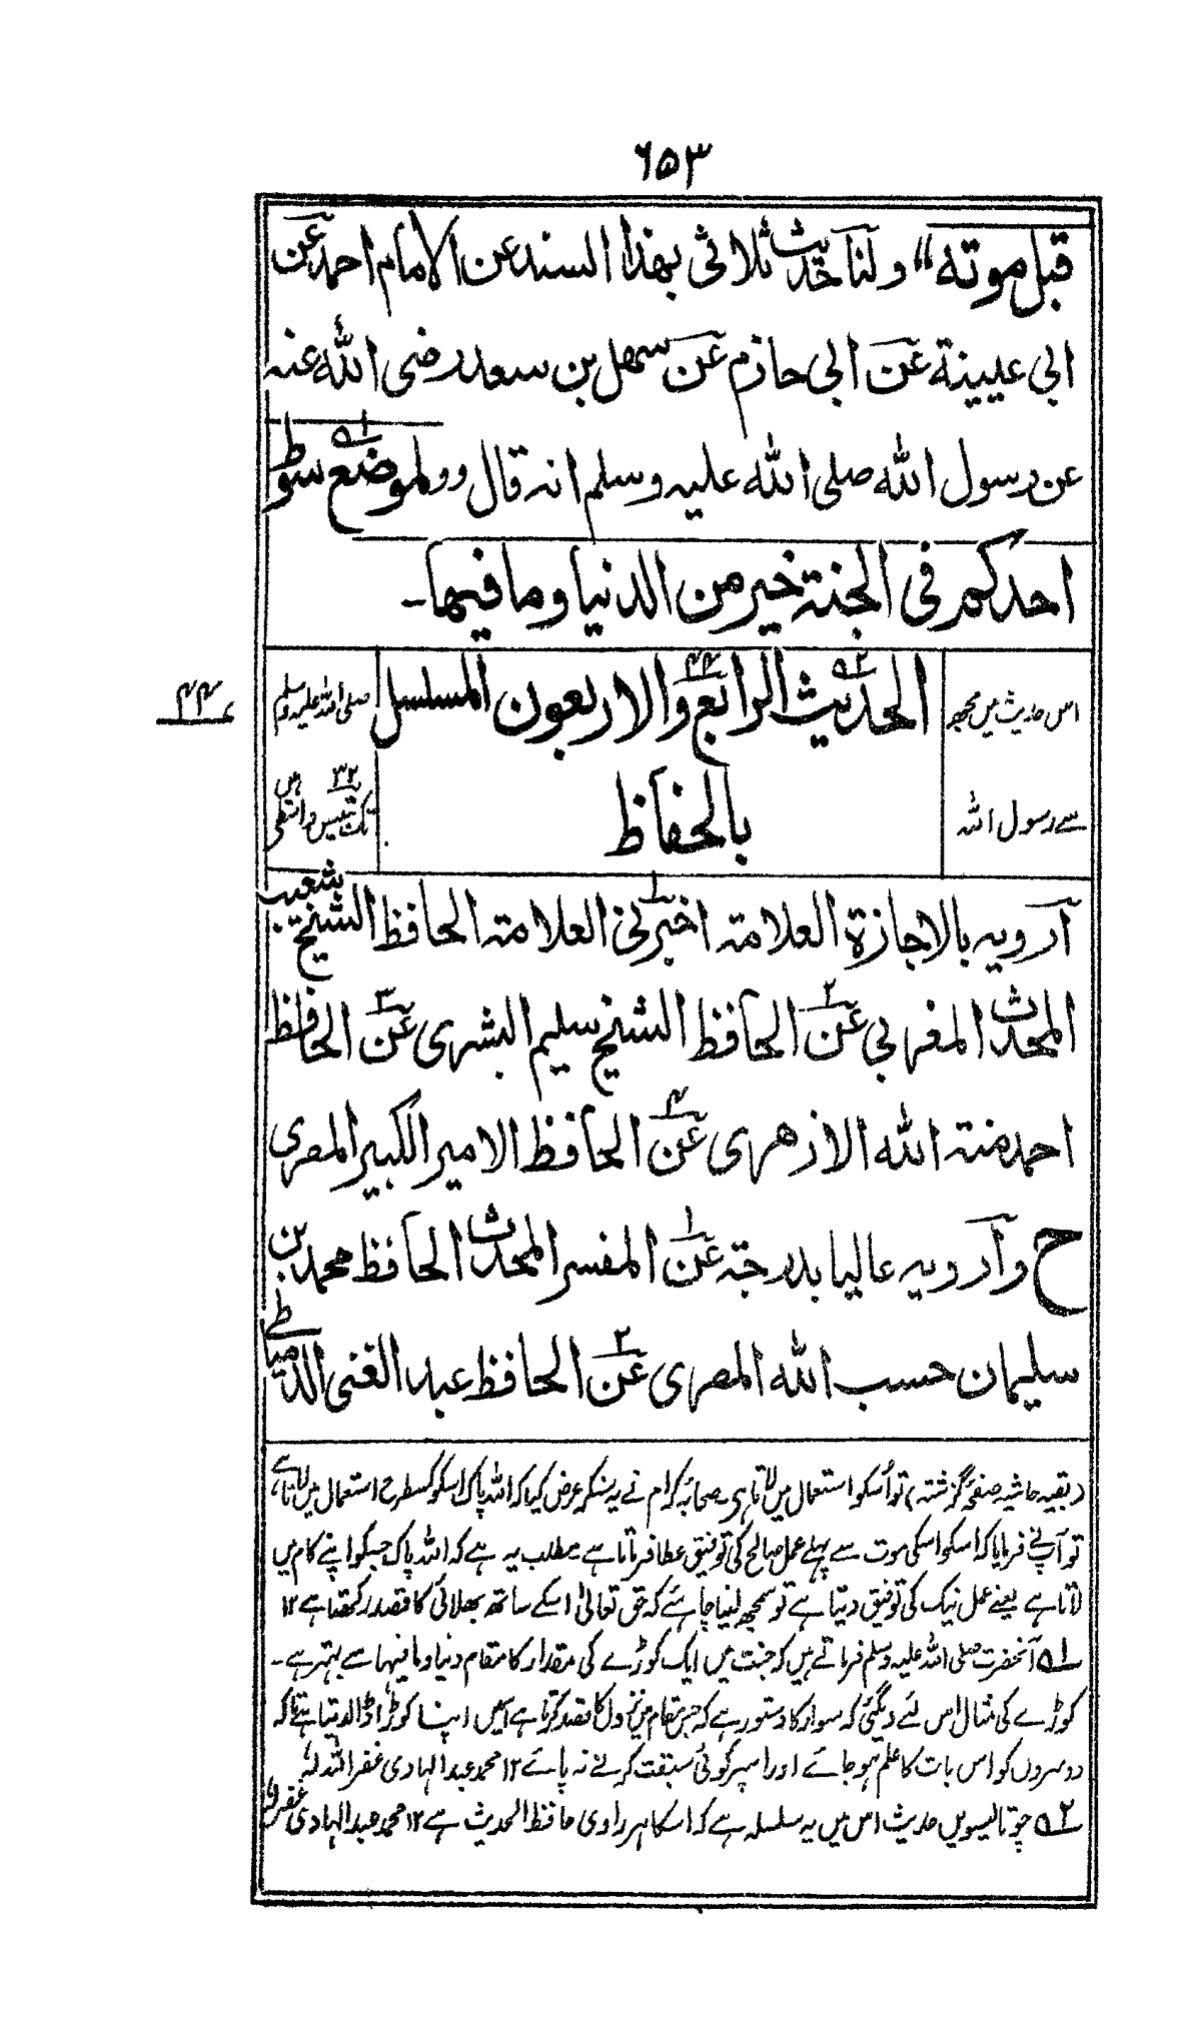 ٦٥٣
قبل موته“ ولنا حديث ثلاثى بهذا السند عن الامام احمد عن
ابي عيينة عن ابي حازم عن سهل بن سعد رضى الله عنه
عن رسول الله صلى الله عليه وسلم انه قال وولموضع سوط
احدكم فى الجنة خير من الدنيا وما فيها۔
اس حدیث میں مجھ
سے رسول اللہ
الحديث الرابع والاربعون المسلسل
بالحفاظ
صلی اللہ علیہ وسلم
تک تیئیس واسطے ہیں
۴۴
ارويه بالاجازة العلامة اخبرنى العلامة الحافظ الشيخ شعيب
المحدث المغربي عن الحافظ الشيخ سليم البشرى عن الحافظ
احمد منة الله الازهرى عن الحافظ الامير الكبير المصرى
ح وارويه عاليا بدرجة عن المفسر المحدث الحافظ محمد بن
سليمان حسب الله المصرى عن الحافظ عبد الغنى الدمياطى
(بقیہ حاشیہ صفحہ گزشتہ) تو اُسکو استعمال میں لاتا ہی۔ صحابہ کرام نے یہ سنکر عرض کیا کہ اللہ پاک اسکو کسطرح استعمال میں لاتا ہے،
تو آپنے فرمایا کہ اسکو اسکی موت سے پہلے عمل صالح کی توفیق عطا فرماتا ہے مطلب یہ ہے کہ اللہ پاک جسکو اپنے کام میں
لاتا ہے یعنے عمل نیک کی توفیق دیتا ہے تو سمجھ لینا چاہئے کہ حق تعالیٰ اسکے ساتھ بھلائی کا قصد رکھتا ہے ۱۲
۱؎ آنحضرت صلی اللہ علیہ وسلم فرماتے ہیں کہ جنت میں ایک کوڑے کی مقدار کا مقام دنیا و مافیہا سے بہتر ہے۔
کوڑے کی مثال اس لئے دیگئی کہ سوار کا دستور ہے کہ جس مقام میں نزول کا قصد کرتا ہے اسمیں اپنا کوڑا ڈالدیتا ہے تاکہ
دوسروں کو اس بات کا علم ہو جائے اور اسپر کوئی سبقت کرنے نہ پائے ۱۲ محمد عبدالہادی غفر اللہ لہ
۲؎ چوتالیسویں حدیث اس میں یہ سلسلہ ہے کہ اسکا ہر راوی حافظ الحدیث ہے ۱۲ محمد عبدالہادی غفرلہ